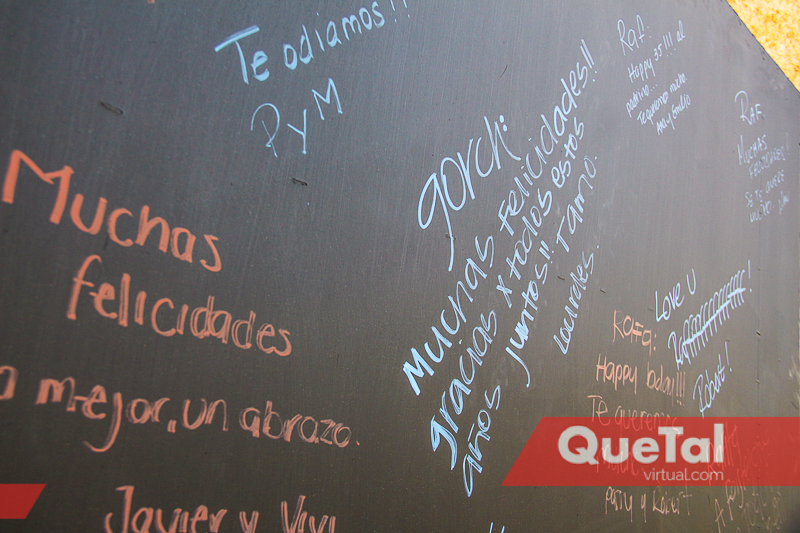 Te odiamos!!
P y M
Muchas
felicidades
mejor, un abrazo.
Javier y Vivi
gorch:
Muchas Felicidades!!
gracias x todos estos
años juntos!! Tamo.
Lourdes.
Raf:
Happy 35!!! al
padrino...
Te quiero mucho
RAF
MUCHAS
FELICIDADES!
SE TE QUIERE
Love U
Robert!
Rafa:
Happy bday!!!
Te queremos
Patty y Robert
QueTal
virtual.com